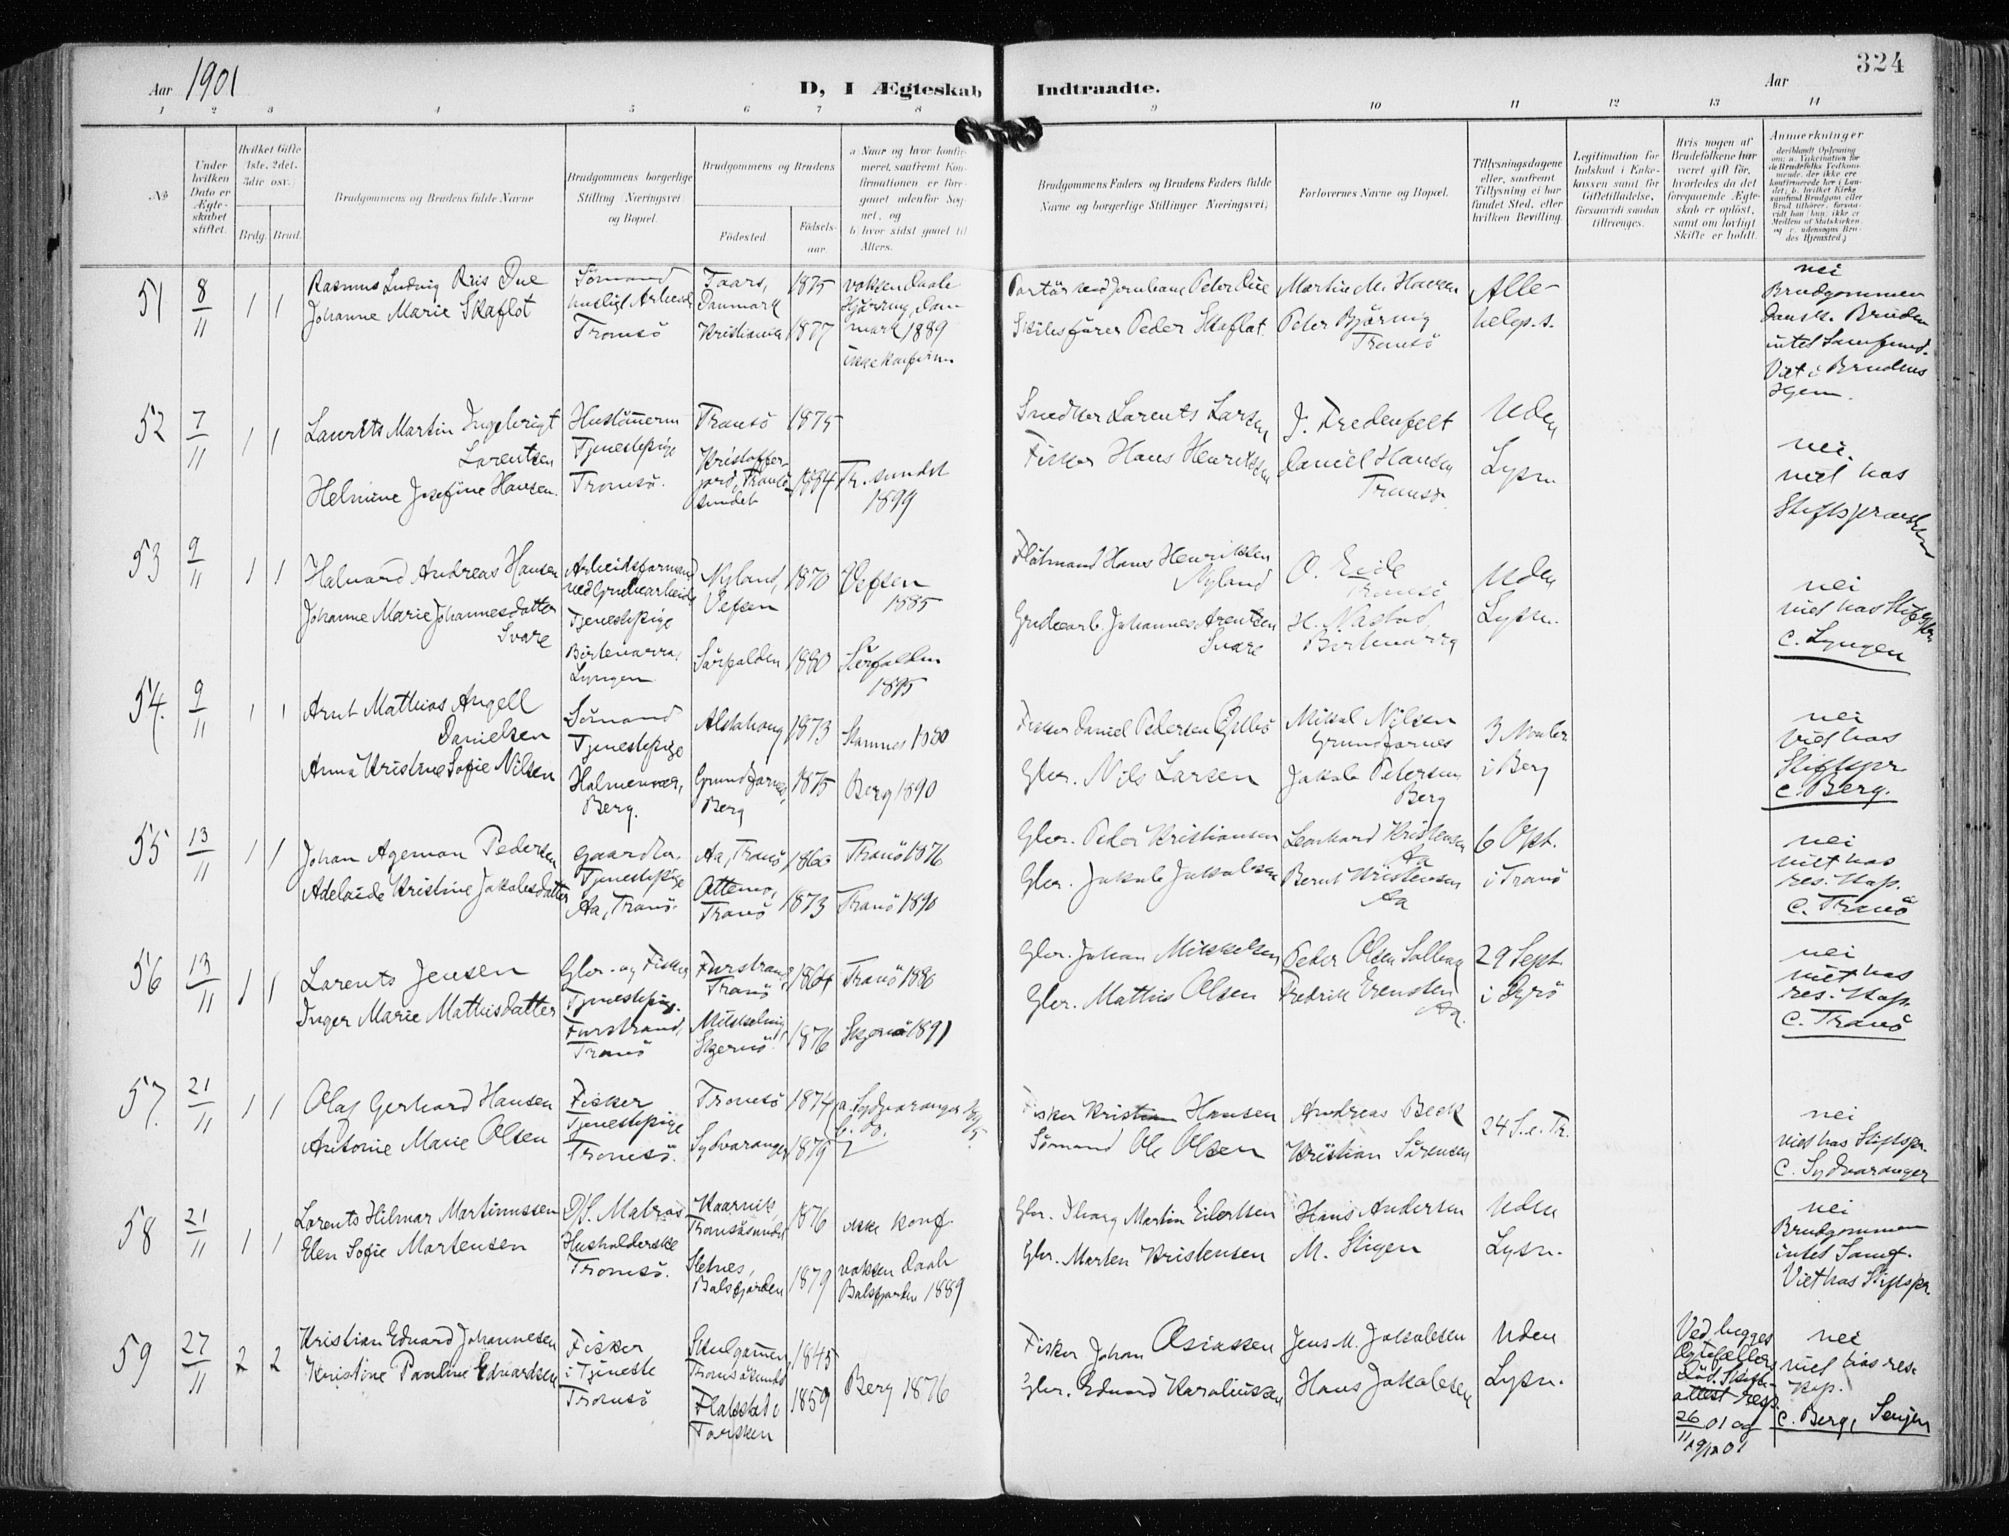 324
Aar 1901
D, I Ægteskab Indtraadte.
Aar
1 2 3 4 5 6 7 8 9 10 11 12 13 14
No
Under hvilken Dato er Ægteskabet stiftet.
Hvilket Gifte 1ste, 2det, 3die osv.
Brdg. Brud.
Brudgommens og Brudens fulde Navne
Brudgommens borgerlige Stilling (Næringsvei) og Bopæl.
Brudgommens og Brudens
Fødested
Fødsels-aar
a Naar og hvor konfirmeret, saafremt Konfirmationen er foregaaet udenfor Sognet, og
b hvor sidst gaaet til Alters.
Brudgommens Faders og Brudens Faders fulde Navne og borgerlige Stillinger (Næringsvei)
Forlovernes Navne og Bopæl.
Tillysningsdagene eller, saafremt Tillysning ei har fundet Sted, efter hvilken Bevilling.
Legitimation for Indskud i Enkekassen samt for Giftetilladelse, forsaavidt saadan tiltrænges.
Hvis nogen af Brudefolkene har været gift før, hvorledes da det foregaaende Ægteskab er opløst, samt om lovligt Skifte er holdt.
Anmerkninger
51 8/11 1 1
Rasmus Ludvig Riis Due
Johanne Marie Skaflot
Sømand
husligt Arbeide
Tromsö
Taars, Danmark
Kristiania
1875
1877
voksen Daab
Hjørring, Danmark 1889
ikke konfirm.
Portør ved Jernbane Peter Due
Skibsfører Peder Skaflot
Martin M. Hansen
Peter Bjørnig
Tromsö
Allehelgs.s.
nei
Brudgommen
Dansk. Bruden
intet Samfund.
Viet i Brudens
Hjem.
52 7/11 1 1
Laurits Martin Ingebrigt
Larentsen
Helmine Josefine Hansen
Hustømrer
Tjenestepige
Tromsö.
Tromsö
Kristoffer-
jord, Tromsö-
sundet
1875
1884
Tr. sundet
1899
Snedker Larents Larsen
Fisker Hans Henriksen
J. Fredenfelt
Daniel Hansen
Tromsö
Uden
Lysn.
nei.
viet hos
Stiftsprovsten
53 9/11 1 1
Halvard Andreas Hansen
Johanne Marie Johannesdatter
Svare
Arbeidsformand
ved Grubearbeide
Tjenestepige
Birtavarra,
Lyngen
Nyland,
Vefsen
Sørfolden
1870
1880
Vefsen
1885
Sørfolden
1895
Flötmand Hans Henriksen
Nyland
Grubearb. Johannes Arentsen
Svare
O. Eide
Tromsö
H. Nastad,
Birtavarra
Uden
Lysn.
nei
viet hos Stiftspr.
C. Lyngen
54. 9/11 1 1
Arnt Mathias Angell
Danielsen
Anna Kristine Sofie Nilsen
Sømand
Tjenestepige
Holmenvær,
Berg.
Alstahoug
Grundfarnes,
Berg
1873
1875
Stamnes 1880
Berg 1890
Fisker Daniel Pedersen
Gbr. Nils Larsen
Mikal Nilsen
Grundfarnes
Jakob Petersen
Berg
3 Novbr
i Berg
nei
viet hos
Stiftspr.
C. Berg.
55 13/11 1 1
Johan Ageman Pedersen
Adelaide Kristine Jakobsdatter
Gaardbr.
Tjenestepige
Aa, Tranö.
Aa, Tranö
Tranö
1860
1873
Tranö 1876
Tranö 1890
Gbr. Peder Kristiansen
Gbr. Jakob Jakobsen
Leonhard Kristensen
Aa
Bernt Kristensen
Aa
6 Okt.
i Tranö
nei
viet hos
res. Kap.
C. Tranö
56 13/11 1 1
Larents Jensen
Inger Marie Mathisdatter
Gbr. og Fisker
Tjenestepige.
Furstrand,
Tranö
Furstrand,
Tranö
1864
1876
Tranö 1880
1891
Gbr. Johan Mikkelsen
Gbr. Mathis Olsen
Peder Olsen Solberg
Fredrik Evensen
Aa.
29 Sept.
i Dyrö
nei
viet hos
res. Kap.
C. Tranö
57. 21/11 1 1
Olaf Gerhard Hansen
Antonie Marie Olsen
Fisker
Tjenestepige
Tromsö.
Tromsö
Sydvaranger
1874
1879
a. Sydvaranger
b. Do.
Fisker Kristian Hansen
Sømand Ole Olsen
Andreas Beck
Kristian Sørensen
24 S. e. Tr.
nei
viet hos Stiftspr.
C. Sydvaranger
58 21/11 1 1
Larents Hilmar Martinussen
Elen Sofie Martensen
D/S. Matros
Husholderske
Tromsö.
Kaarvik,
Tromsösundet
Selnes,
Balsfjorden
1876
1879
ikke konf.
voksen Daab
Balsfjorden 1889
Gbr. Martin Eilertsen
Gbr. Morten Kristensen
Hans Andersen
M. Stigen
Uden
Lysn.
nei
Brudgommen
intet Samf.
Viet hos Stiftspr.
59 27/11 2 2
Kristian Edvard Johannesen
Kristine Pauline Edvardsen
Fisker
i Tjeneste
Tromsö
Skulgammen,
Tromsösundet
Flakstad i
Torsken
1845
1859
Berg 1876
Fisker Johan Asiassen
Gbr. Edvard Karoliussen
Jens M. Jakobsen
Hans Jakobsen
Uden
Lysn.
Ved begges
Ægtefællers
Död. Skifte-
attest resp.
26/11 01 og
19/12 01
nei
viet hos res.
Kap.
C. Berg, Senjen